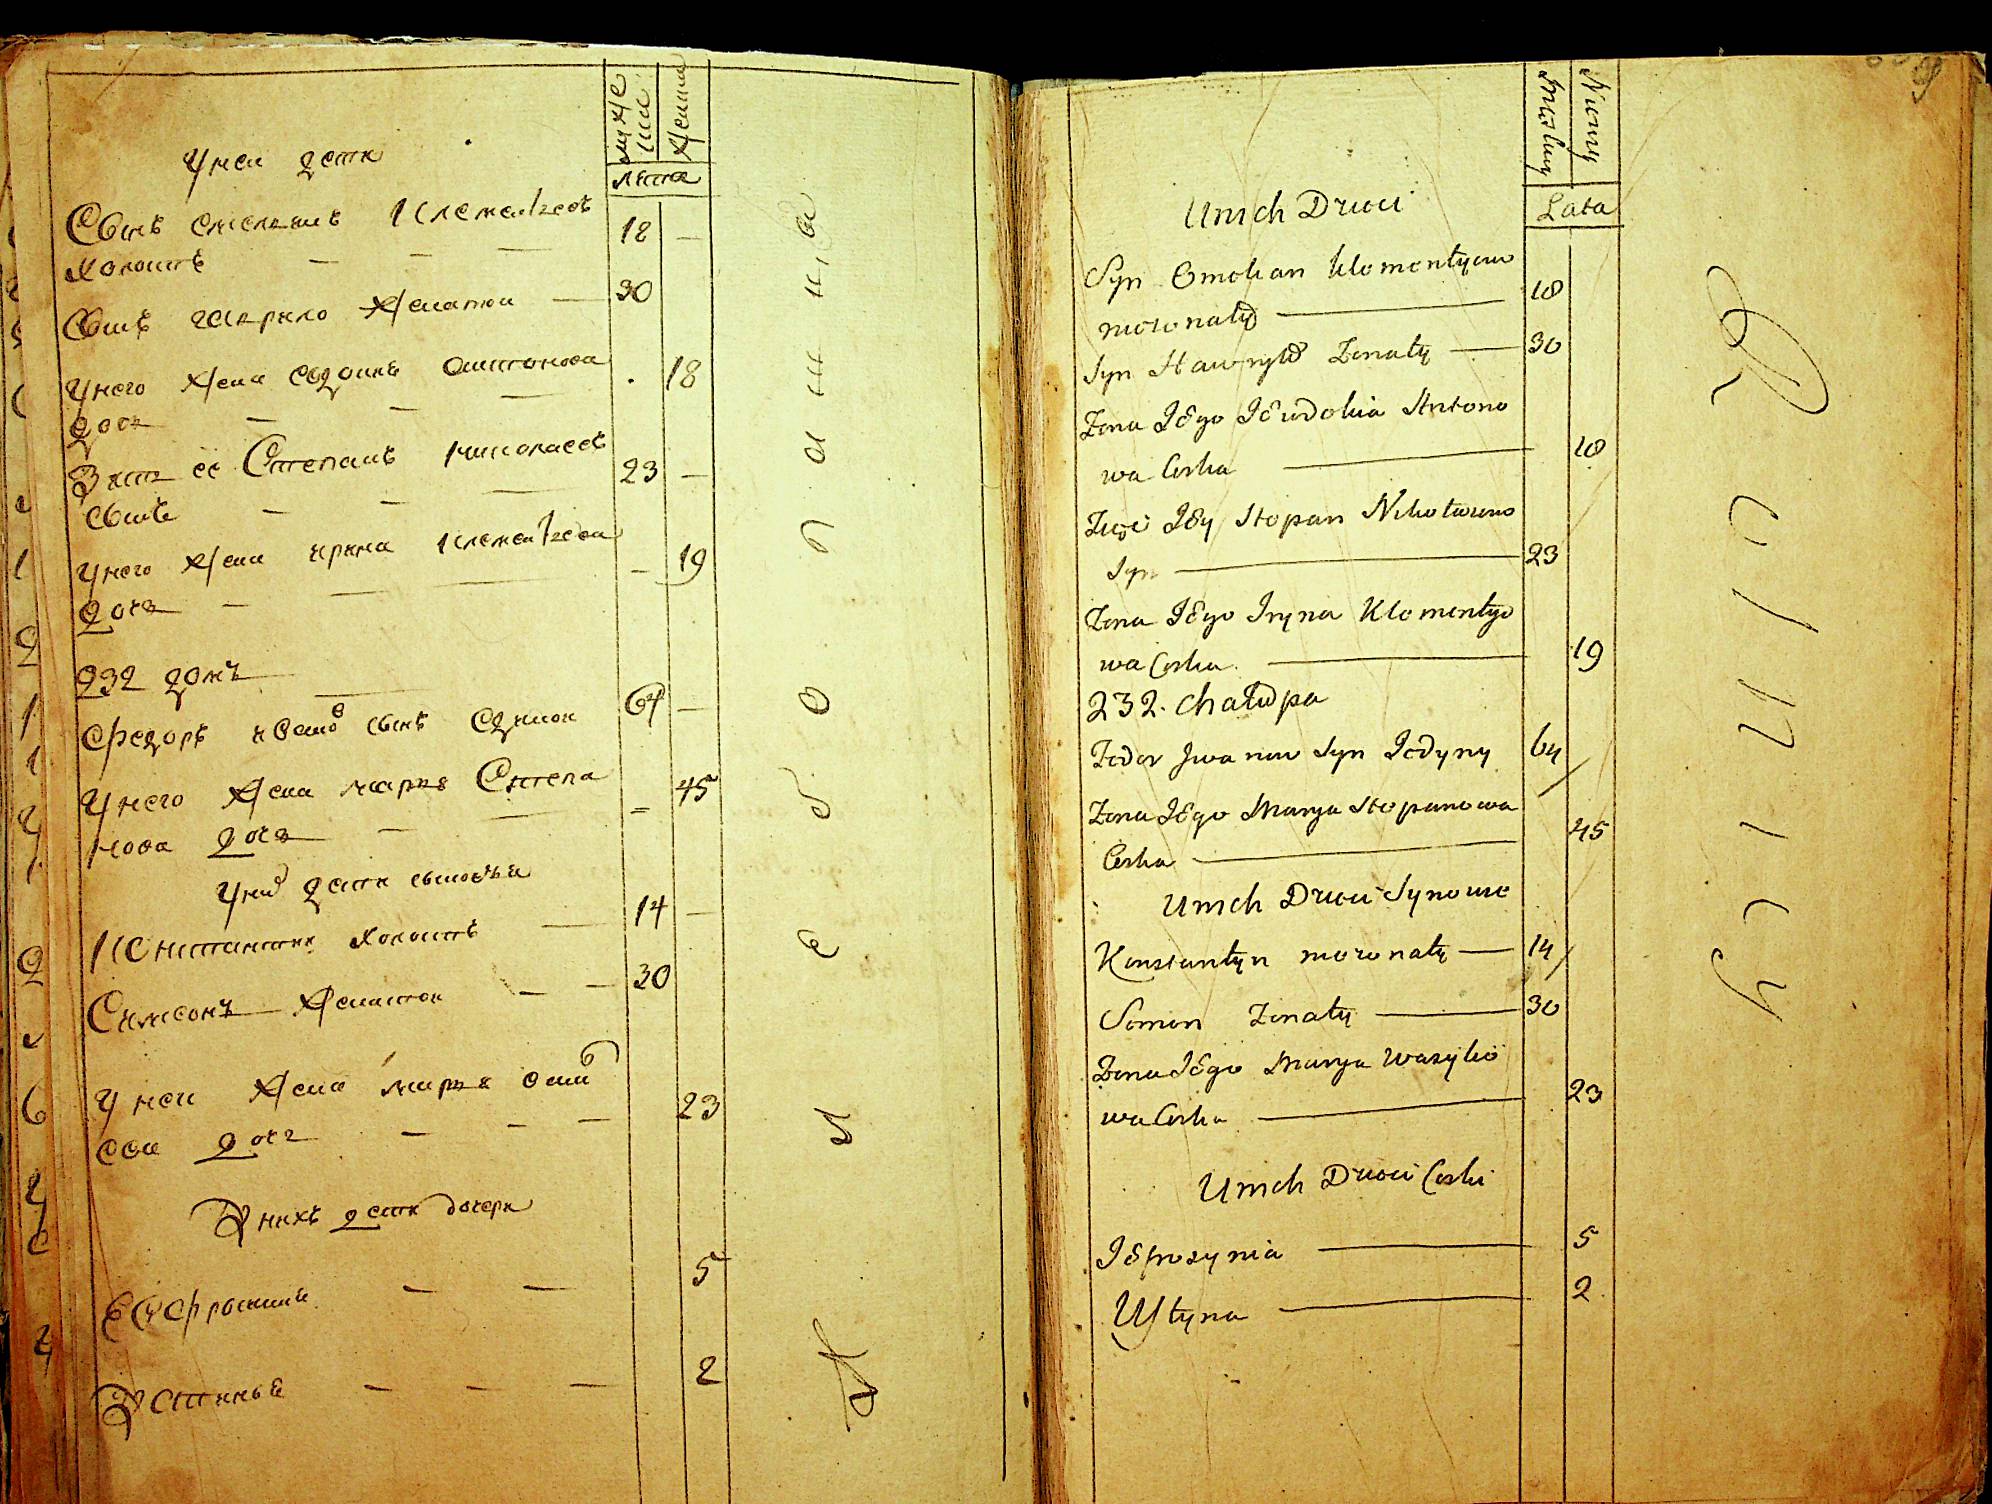 муже
ска
женска
лѣта
У неи дети
Сынъ емелянъ Клементеевъ
холостъ — — — 18 —
Сынъ гаврило женатои — 30
У него жена евдокиа антонова
дочь — — — 18
Зять ее Степанъ николаевъ
сынъ — — — 23 —
У него жена ирина клементеева
дочь — — — — 19
232 домъ
Федоръ ивановъ сынъ единои 64 —
У него жена марья Степа
нова дочь — — — 45
У них дети сыновья
Константин холостъ — 14 —
Симеонъ женатои — — 30
У неи жена марья васи
ева дочь — — — 23
У нихъ дети дочери
Еуфросиния — — 5
Устинья — — — 2
Męskiy
Niewiy
Lata
U nich Dzieci
Syn Emelian Klementyiw
niezonaty — 18
Syn Hawryło Zonaty — 30
Zona Jego Jewdokia Antono
wa Corka — 18
Zięć Jey Stepan Nikołaiuw
Syn — 23
Zona Jego Iryna Klementyo
wa Corka — 19
232. Chałupa
Fedor Iwanow Syn Jedyny 64
Zona Jego Marya Stepanowa
Corka — 45
U nich Dzieci Synowie
Konstantyn niezonaty — 14
Semen Zonaty — 30
Zona Jego Marya Wasylio
wa Corka — 23
U nich Dzieci Corki
Jefrozynia — 5
Ustyna — 2
Rolnicy